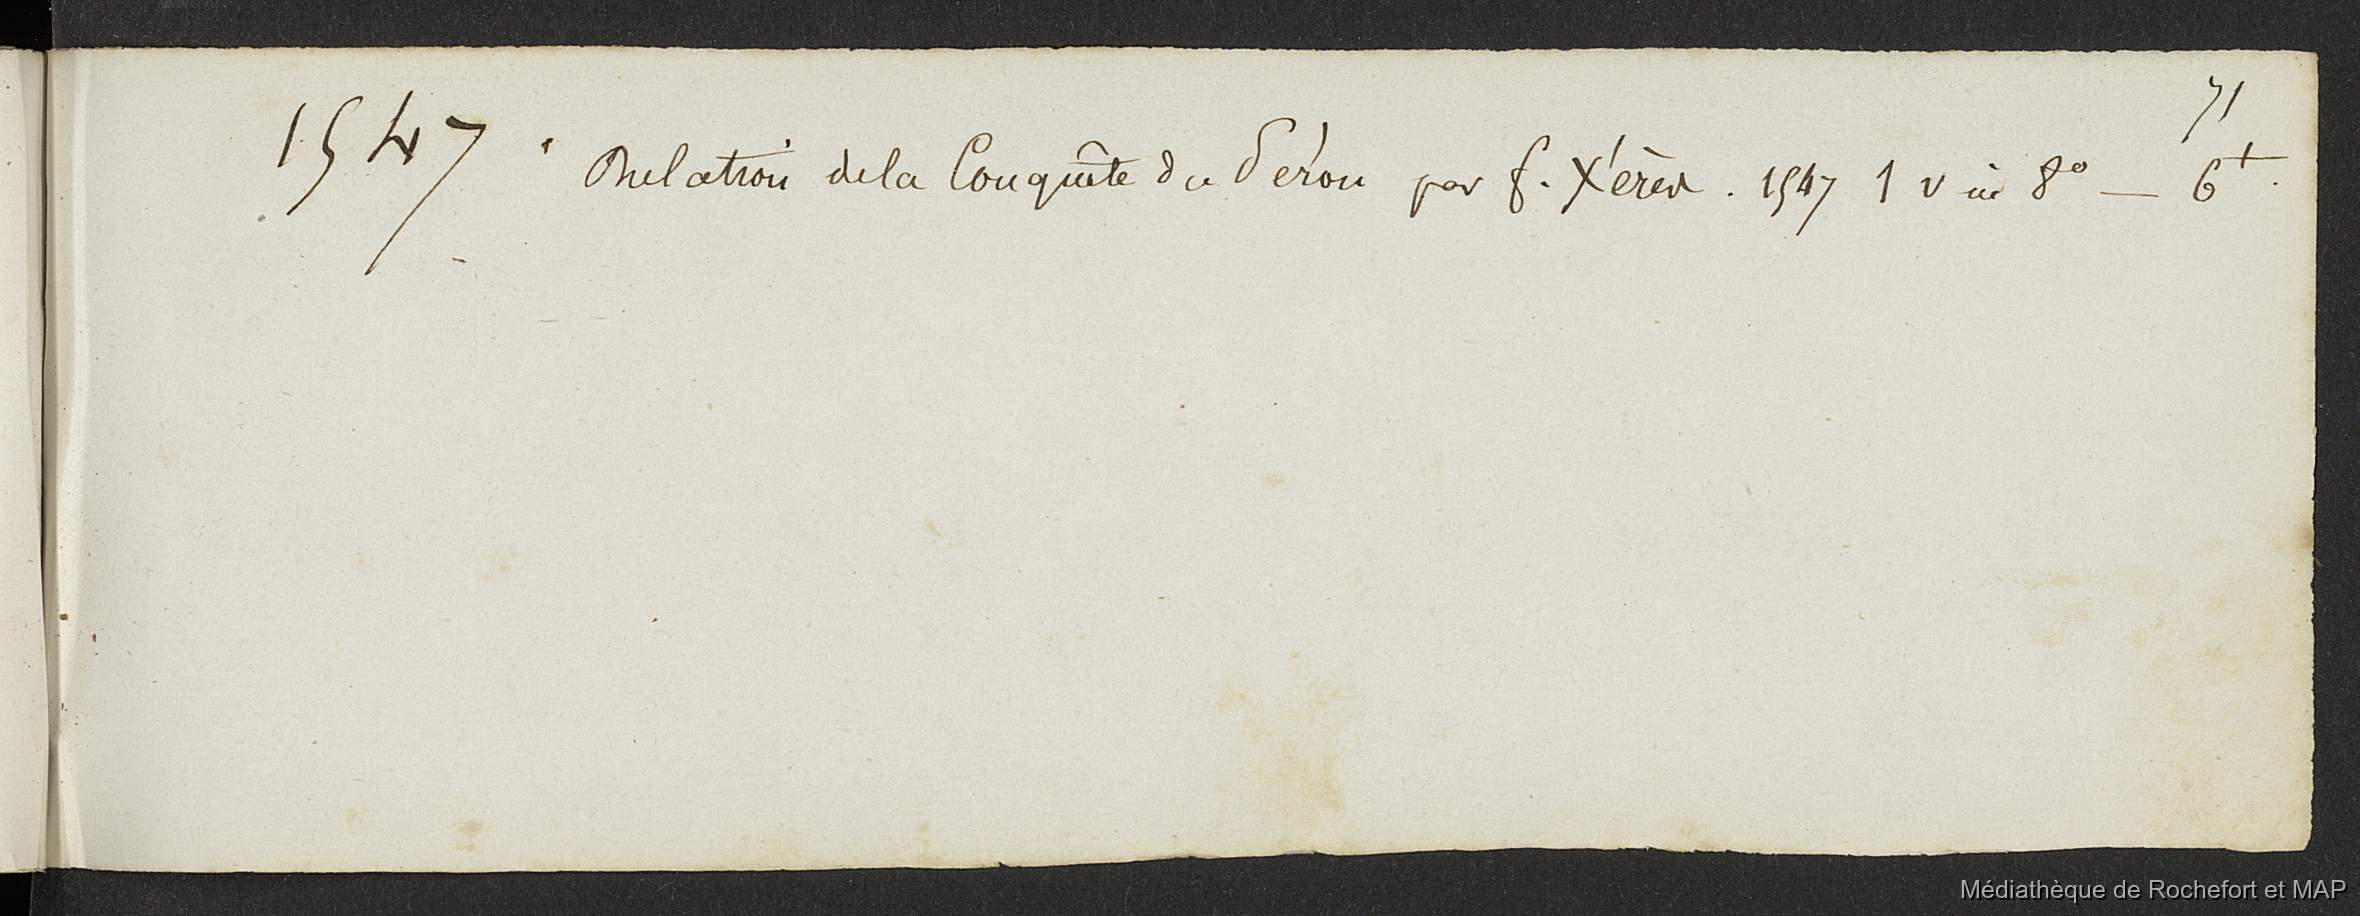 71
1547 Relation de la Conquête du Pérou par f. Xérès. 1547 1 v in 8° — 6ᵗ.
Médiathèque de Rochefort et MAP